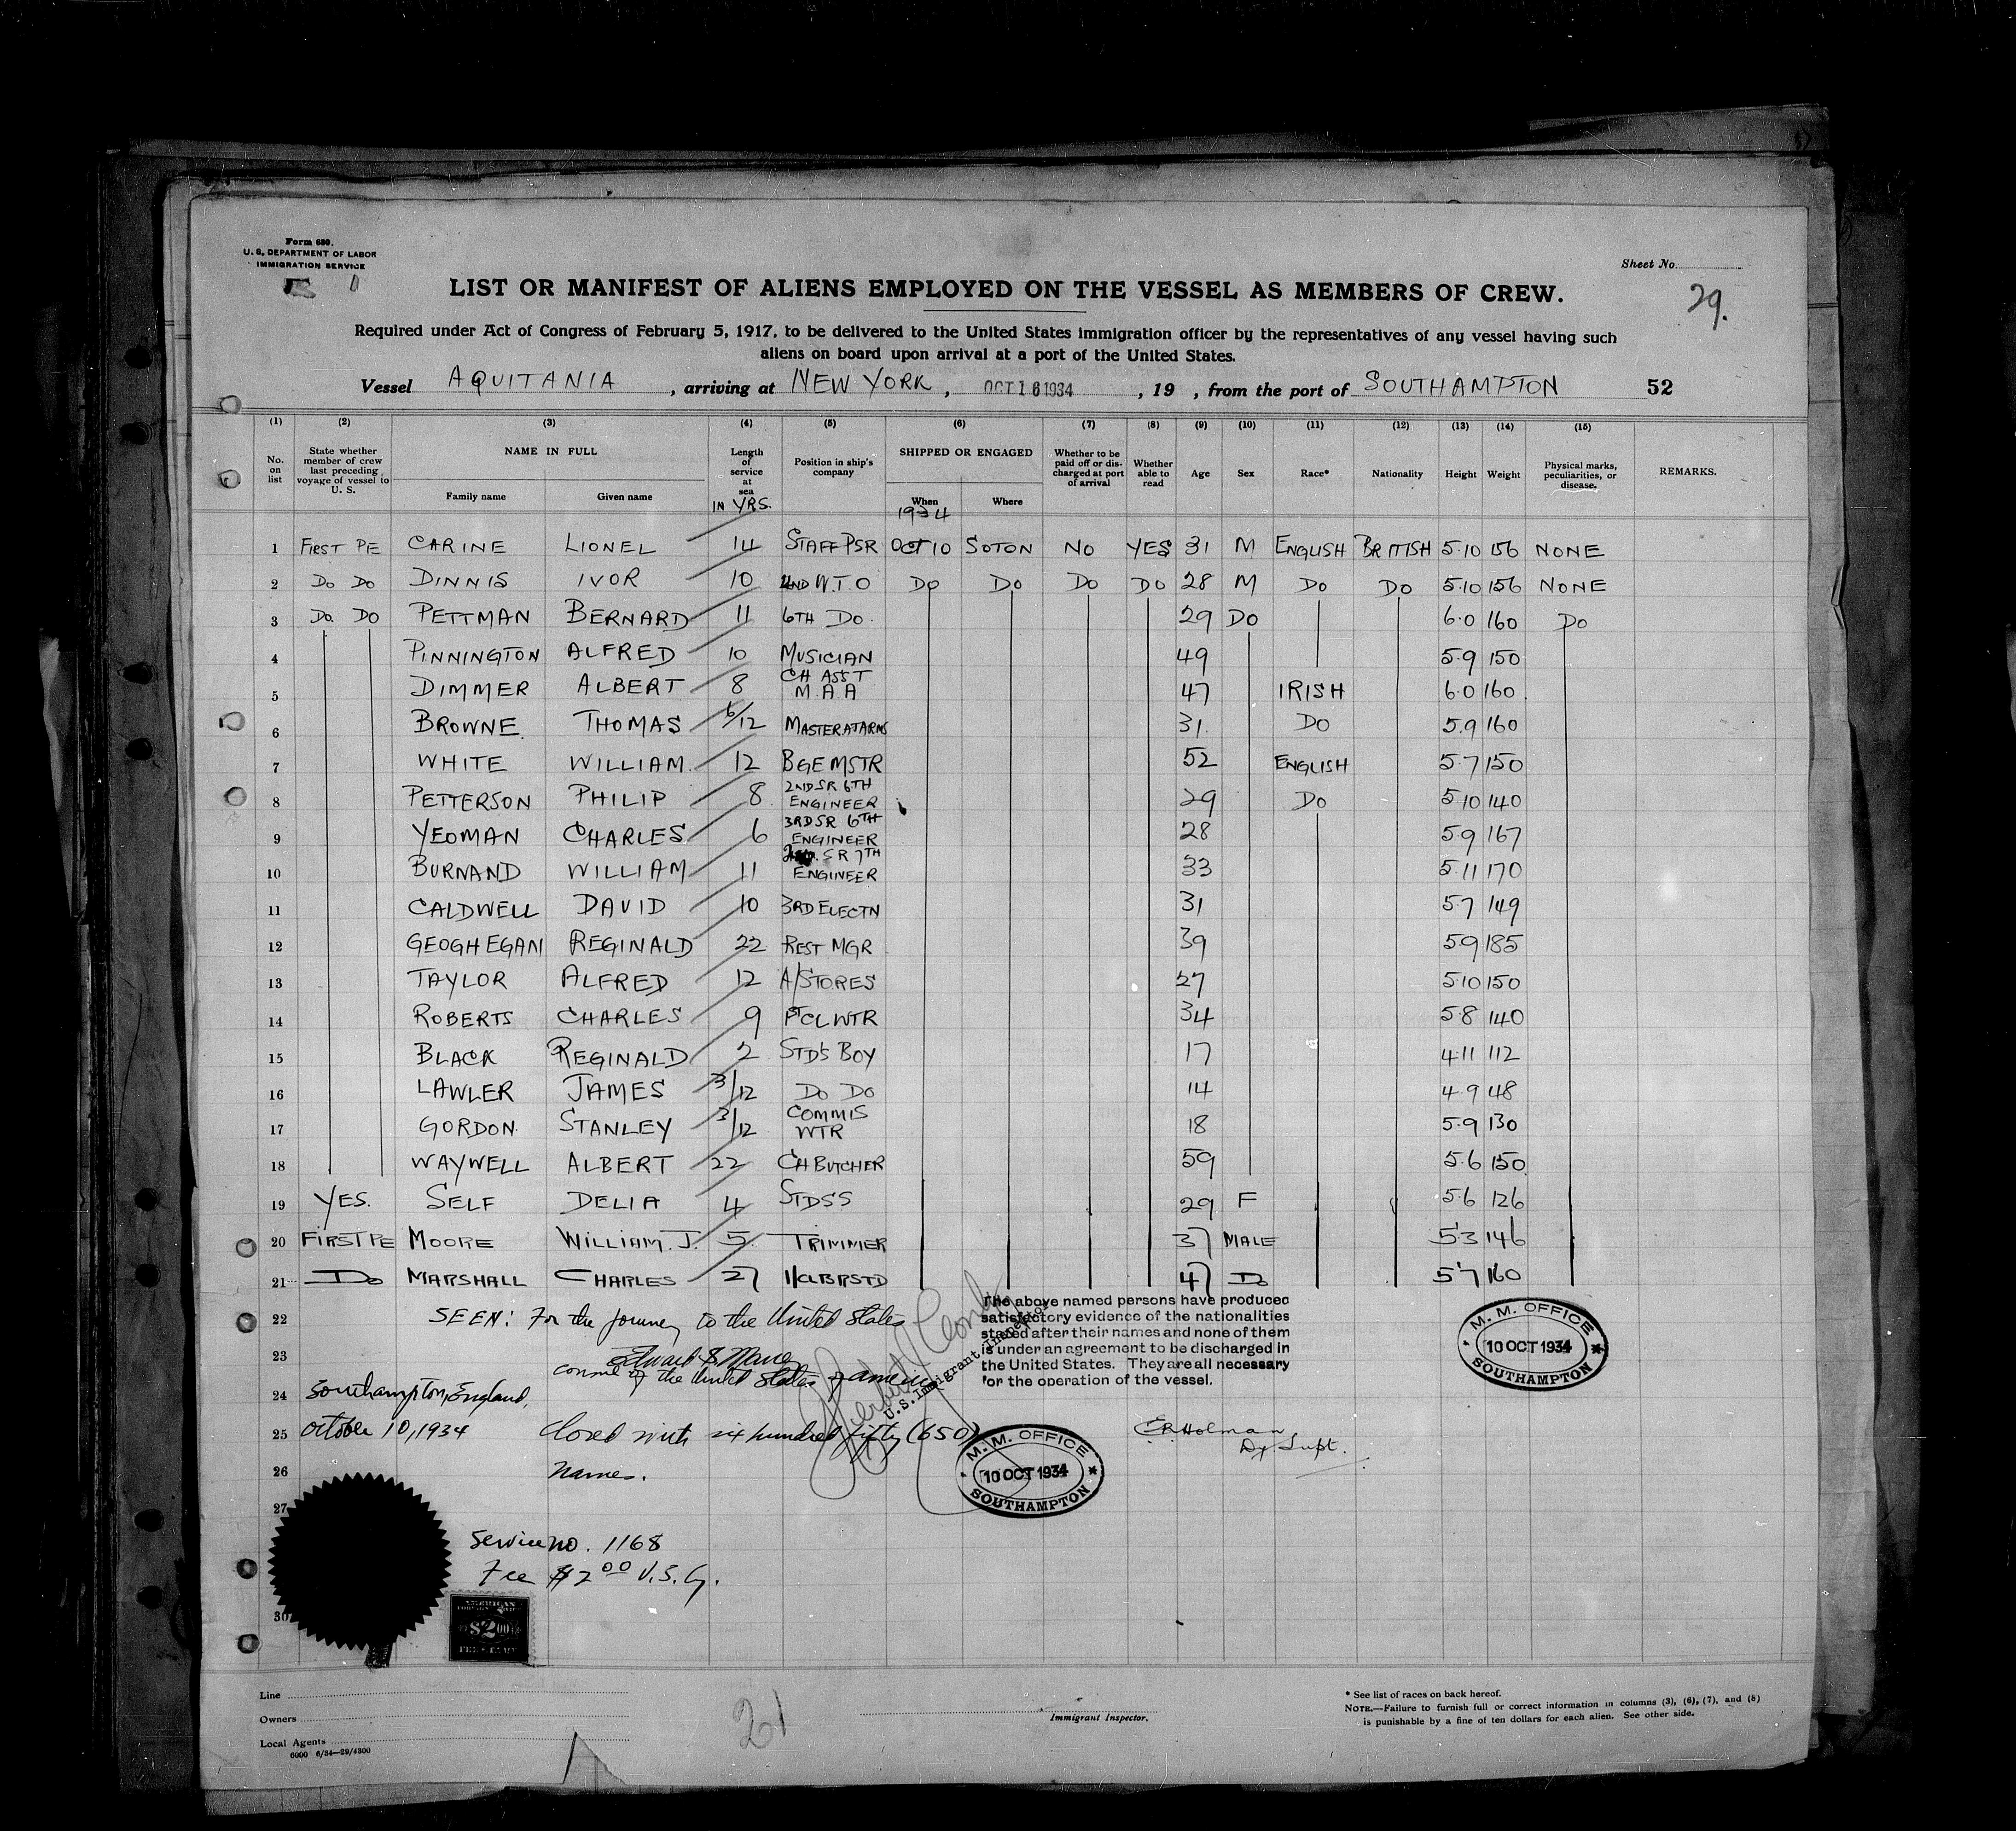 Form 680.
U. S. DEPARTMENT OF LABOR
IMMIGRATION SERVICE
Sheet No.
29.
LIST OR MANIFEST OF ALIENS EMPLOYED ON THE VESSEL AS MEMBERS OF CREW.
Required under Act of Congress of February 5, 1917, to be delivered to the United States immigration officer by the representatives of any vessel having such
aliens on board upon arrival at a port of the United States.
Vessel AQUITANIA, arriving at NEW YORK, OCT 16 1934, 19 , from the port of SOUTHAMPTON 52
(1) (2) (3) (4) (5) (6) (7) (8) (9) (10) (11) (12) (13) (14) (15)
No. on list State whether member of crew last preceding voyage of vessel to U. S. NAME IN FULL Family name Given name Length of service at sea IN YRS. Position in ship's company SHIPPED OR ENGAGED When 1934 Where Whether to be paid off or discharged at port of arrival Whether able to read Age Sex Race* Nationality Height Weight Physical marks, peculiarities, or disease. REMARKS.
1 FIRST PE CARINE LIONEL 14 STAFF PSR OCT 10 SOTON NO YES 31 M ENGLISH BRITISH 5.10 156 NONE
2 DO DO DINNIS IVOR 10 2ND W.T.O DO DO DO DO 28 M DO DO 5.10 156 NONE
3 DO. DO PETTMAN BERNARD 11 6TH DO. 29 DO 6.0 160 DO
4 PINNINGTON ALFRED 10 MUSICIAN 49 5.9 150
5 DIMMER ALBERT 8 CH ASST M.A.A 47 IRISH 6.0 160.
6 BROWNE. THOMAS 6/12 MASTERATARMS 31. DO 5.9 160
7 WHITE WILLIAM. 12 BGE MSTR 52 ENGLISH 5.7 150
8 PETTERSON PHILIP 8. 2ND SR 6TH ENGINEER 29 DO 5.10 140
9 YEOMAN CHARLES 6 3RD SR 6TH ENGINEER 28 5.9 167
10 BURNAND WILLIAM 11 SR 7TH ENGINEER 33 5.11 170
11 CALDWELL DAVID 10 3RD ELECTN 31 5.7 149
12 GEOGHEGAN REGINALD 22 REST MGR 39 5.9 185
13 TAYLOR ALFRED 12 A/STORES 27 5.10 150
14 ROBERTS CHARLES 9 WTR 34 5.8 140
15 BLACK REGINALD 2 STD'S BOY 17 4.11 112
16 LAWLER JAMES 3/12 DO DO 14 4.9 48
17 GORDON. STANLEY 3/12 COMMIS WTR 18 5.9 130
18 WAYWELL ALBERT 22 CH BUTCHER 59 5.6 150.
19 YES. SELF DELIA 4 STDSS 29 F 5.6 126
20 FIRST PE MOORE WILLIAM. J. 5. TRIMMER 37 MALE 5.3 146
21 DO MARSHALL CHARLES 27 1/CLBRSTD 47 DO 5.7 160
22 SEEN: For the journey to the United States
23 Consul of the United States of America
24 Southampton, England.
25 October 10, 1934 Closed with six hundred fifty (650)
26 names.
27
30
The above named persons have produced
satisfactory evidence of the nationalities
stated after their names and none of them
is under an agreement to be discharged in
the United States. They are all necessary
for the operation of the vessel.
U.S. Immigrant Inspector
M. M. OFFICE
10 OCT 1934
SOUTHAMPTON
M. M. OFFICE
10 OCT 1934
SOUTHAMPTON
Holman,
Dy. Supt.
Service no. 1168
Fee $2.00 U.S.G.
AMERICAN
$2.00
Line
Owners
Local Agents
6000 6/34—29/4300
21
Immigrant Inspector.
* See list of races on back hereof.
NOTE.—Failure to furnish full or correct information in columns (3), (6), (7), and (8)
is punishable by a fine of ten dollars for each alien. See other side.